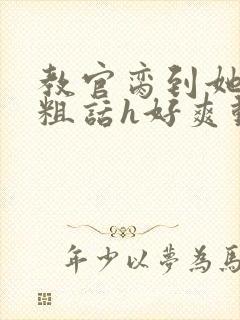 教官脔到她
粗话h好爽
年少以夢為馬